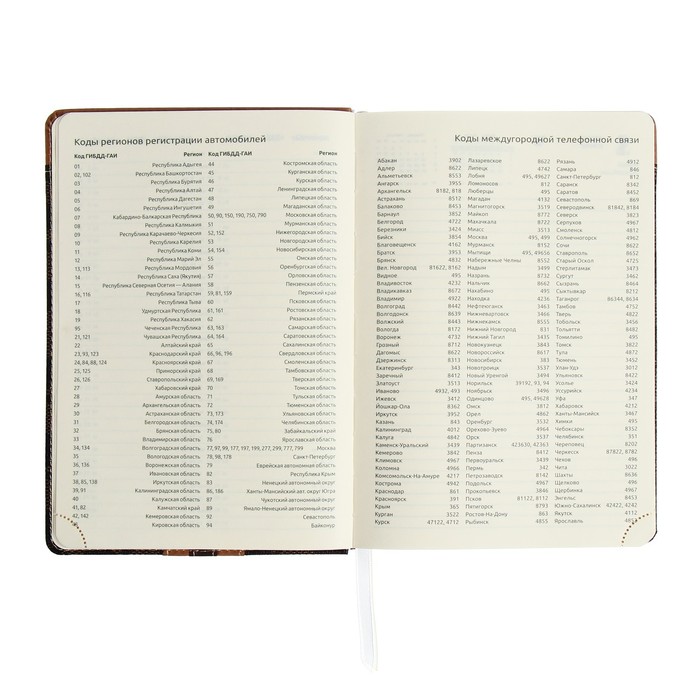 Коды регионов регистрации автомобилей
Код ГИБДД-ГАИ Регион Код ГИБДД-ГАИ Регион
01 Республика Адыгея 44 Костромская область
02, 102 Республика Башкортостан 45 Курганская область
03 Республика Бурятия 46 Курская область
04 Республика Алтай 47 Ленинградская область
05 Республика Дагестан 48 Липецкая область
06 Республика Ингушетия 49 Магаданская область
07 Кабардино-Балкарская Республика 50, 90, 150, 190, 750, 790 Московская область
08 Республика Калмыкия 51 Мурманская область
09 Республика Карачаево-Черкесия 52, 152 Нижегородская область
10 Республика Карелия 53 Новгородская область
11 Республика Коми 54, 154 Новосибирская область
12 Республика Марий Эл 55 Омская область
13, 113 Республика Мордовия 56 Оренбургская область
14 Республика Саха (Якутия) 57 Орловская область
15 Республика Северная Осетия — Алания 58 Пензенская область
16, 116 Республика Татарстан 59, 81, 159 Пермский край
17 Республика Тыва 60 Псковская область
18 Удмуртская Республика 61, 161 Ростовская область
19 Республика Хакасия 62 Рязанская область
95 Чеченская Республика 63, 163 Самарская область
21, 121 Чувашская Республика 64, 164 Саратовская область
22 Алтайский край 65 Сахалинская область
23, 93, 123 Краснодарский край 66, 96, 196 Свердловская область
24, 84, 88, 124 Красноярский край 67 Смоленская область
25, 125 Приморский край 68 Тамбовская область
26, 126 Ставропольский край 69, 169 Тверская область
27 Хабаровский край 70 Томская область
28 Амурская область 71 Тульская область
29 Архангельская область 72 Тюменская область
30 Астраханская область 73, 173 Ульяновская область
31 Белгородская область 74, 174 Челябинская область
32 Брянская область 75, 80 Забайкальский край
33 Владимирская область 76 Ярославская область
34, 134 Волгоградская область 77, 97, 99, 177, 197, 199, 277, 299, 777, 799 Москва
35 Вологодская область 78, 98, 178 Санкт-Петербург
36, 136 Воронежская область 79 Еврейская автономная область
37 Ивановская область 82 Республика Крым
38, 85, 138 Иркутская область 83 Ненецкий автономный округ
39, 91 Калининградская область 86, 186 Ханты-Мансийский авт. округ Югра
40 Калужская область 87 Чукотский автономный округ
41, 82 Камчатский край 89 Ямало-Ненецкий автономный округ
42, 142 Кемеровская область 92 Севастополь
Кировская область 94 Байконур
Коды междугородной телефонной связи
Абакан 3902 Лазаревское 8622 Рязань 4912
Адлер 8622 Липецк 4742 Самара 846
Альметьевск 8553 Лобня 495, 49627 Санкт-Петербург 812
Ангарск 3955 Ломоносов 812 Саранск 8342
Архангельск 8182, 818 Люберцы 495 Саратов 8452
Астрахань 8512 Магадан 4132 Севастополь 869
Балаково 8453 Магнитогорск 3519 Северодвинск 81842, 8184
Барнаул 3852 Майкоп 8772 Северск 3823
Белгород 4722 Махачкала 8722 Серпухов 4967
Березники 3424 Миасс 3513 Смоленск 4812
Бийск 3854 Москва 495, 499 Солнечногорск 4962
Благовещенск 4162 Мурманск 8152 Сочи 8622
Братск 3953 Мытищи 495, 49656 Ставрополь 8652
Брянск 4832 Набережные Челны 8552 Старый Оскол 4725
Вел. Новгород 81622, 8162 Надым 3499 Стерлитамак 3473
Видное 495 Назрань 8732 Сургут 3462
Владивосток 4232 Нальчик 8662 Сызрань 8464
Владикавказ 8672 Нахабино 495 Сыктывкар 8212
Владимир 4922 Находка 4236 Таганрог 86344, 8634
Волгоград 8442 Нефтеюганск 3463 Тамбов 4752
Волгодонск 8639 Нижневартовск 3466 Тверь 4822
Волжский 8443 Нижнекамск 8555 Тобольск 3456
Вологда 8172 Нижний Новгород 831 Тольятти 8482
Воронеж 4732 Нижний Тагил 3435 Томилино 495
Грозный 8712 Новокузнецк 3843 Томск 3822
Дагомыс 8622 Новороссийск 8617 Тула 4872
Дзержинск 8313 Новосибирск 383 Тюмень 3452
Екатеринбург 343 Новотроицк 3537 Улан-Удэ 3012
Заречный 8412 Новый Уренгой 3494 Ульяновск 8422
Златоуст 3513 Норильск 39192, 93, 94 Усолье 3424
Иваново 4932, 493 Ноябрьск 3496 Усть-Илимск 39535
Ижевск 3412 Одинцово 495, 49628 Уфа 347
Йошкар-Ола 8362 Омск 3812 Хабаровск 4212
Иркутск 3952 Орел 4862 Ханты-Мансийск 3467
Казань 843 Оренбург 3532 Химки 495
Калининград 4012 Орехово-Зуево 4964 Чебоксары 8352
Калуга 4842 Орск 3537 Челябинск 351
Каменск-Уральский 3439 Партизанск 423630, 42363 Череповец 8202
Кемерово 3842 Пенза 8412 Черкесск 87822, 8782
Климовск 4967 Первоуральск 3439 Чехов 496
Коломна 4966 Пермь 342 Чита 3022
Комсомольск-На-Амуре 4217 Петрозаводск 8142 Шахты 8636
Кострома 4942 Подольск 4967 Щелково 496
Краснодар 861 Прокопьевск 3846 Щербинка 4967
Красноярск 391 Псков 81122, 8112 Энгельс 8453
Крым 365 Пятигорск 8793 Южно-Сахалинск 42422, 4242
Курган 3522 Ростов-На-Дону 863 Якутск 4112
Курск 47122, 4712 Рыбинск 4855 Ярославль